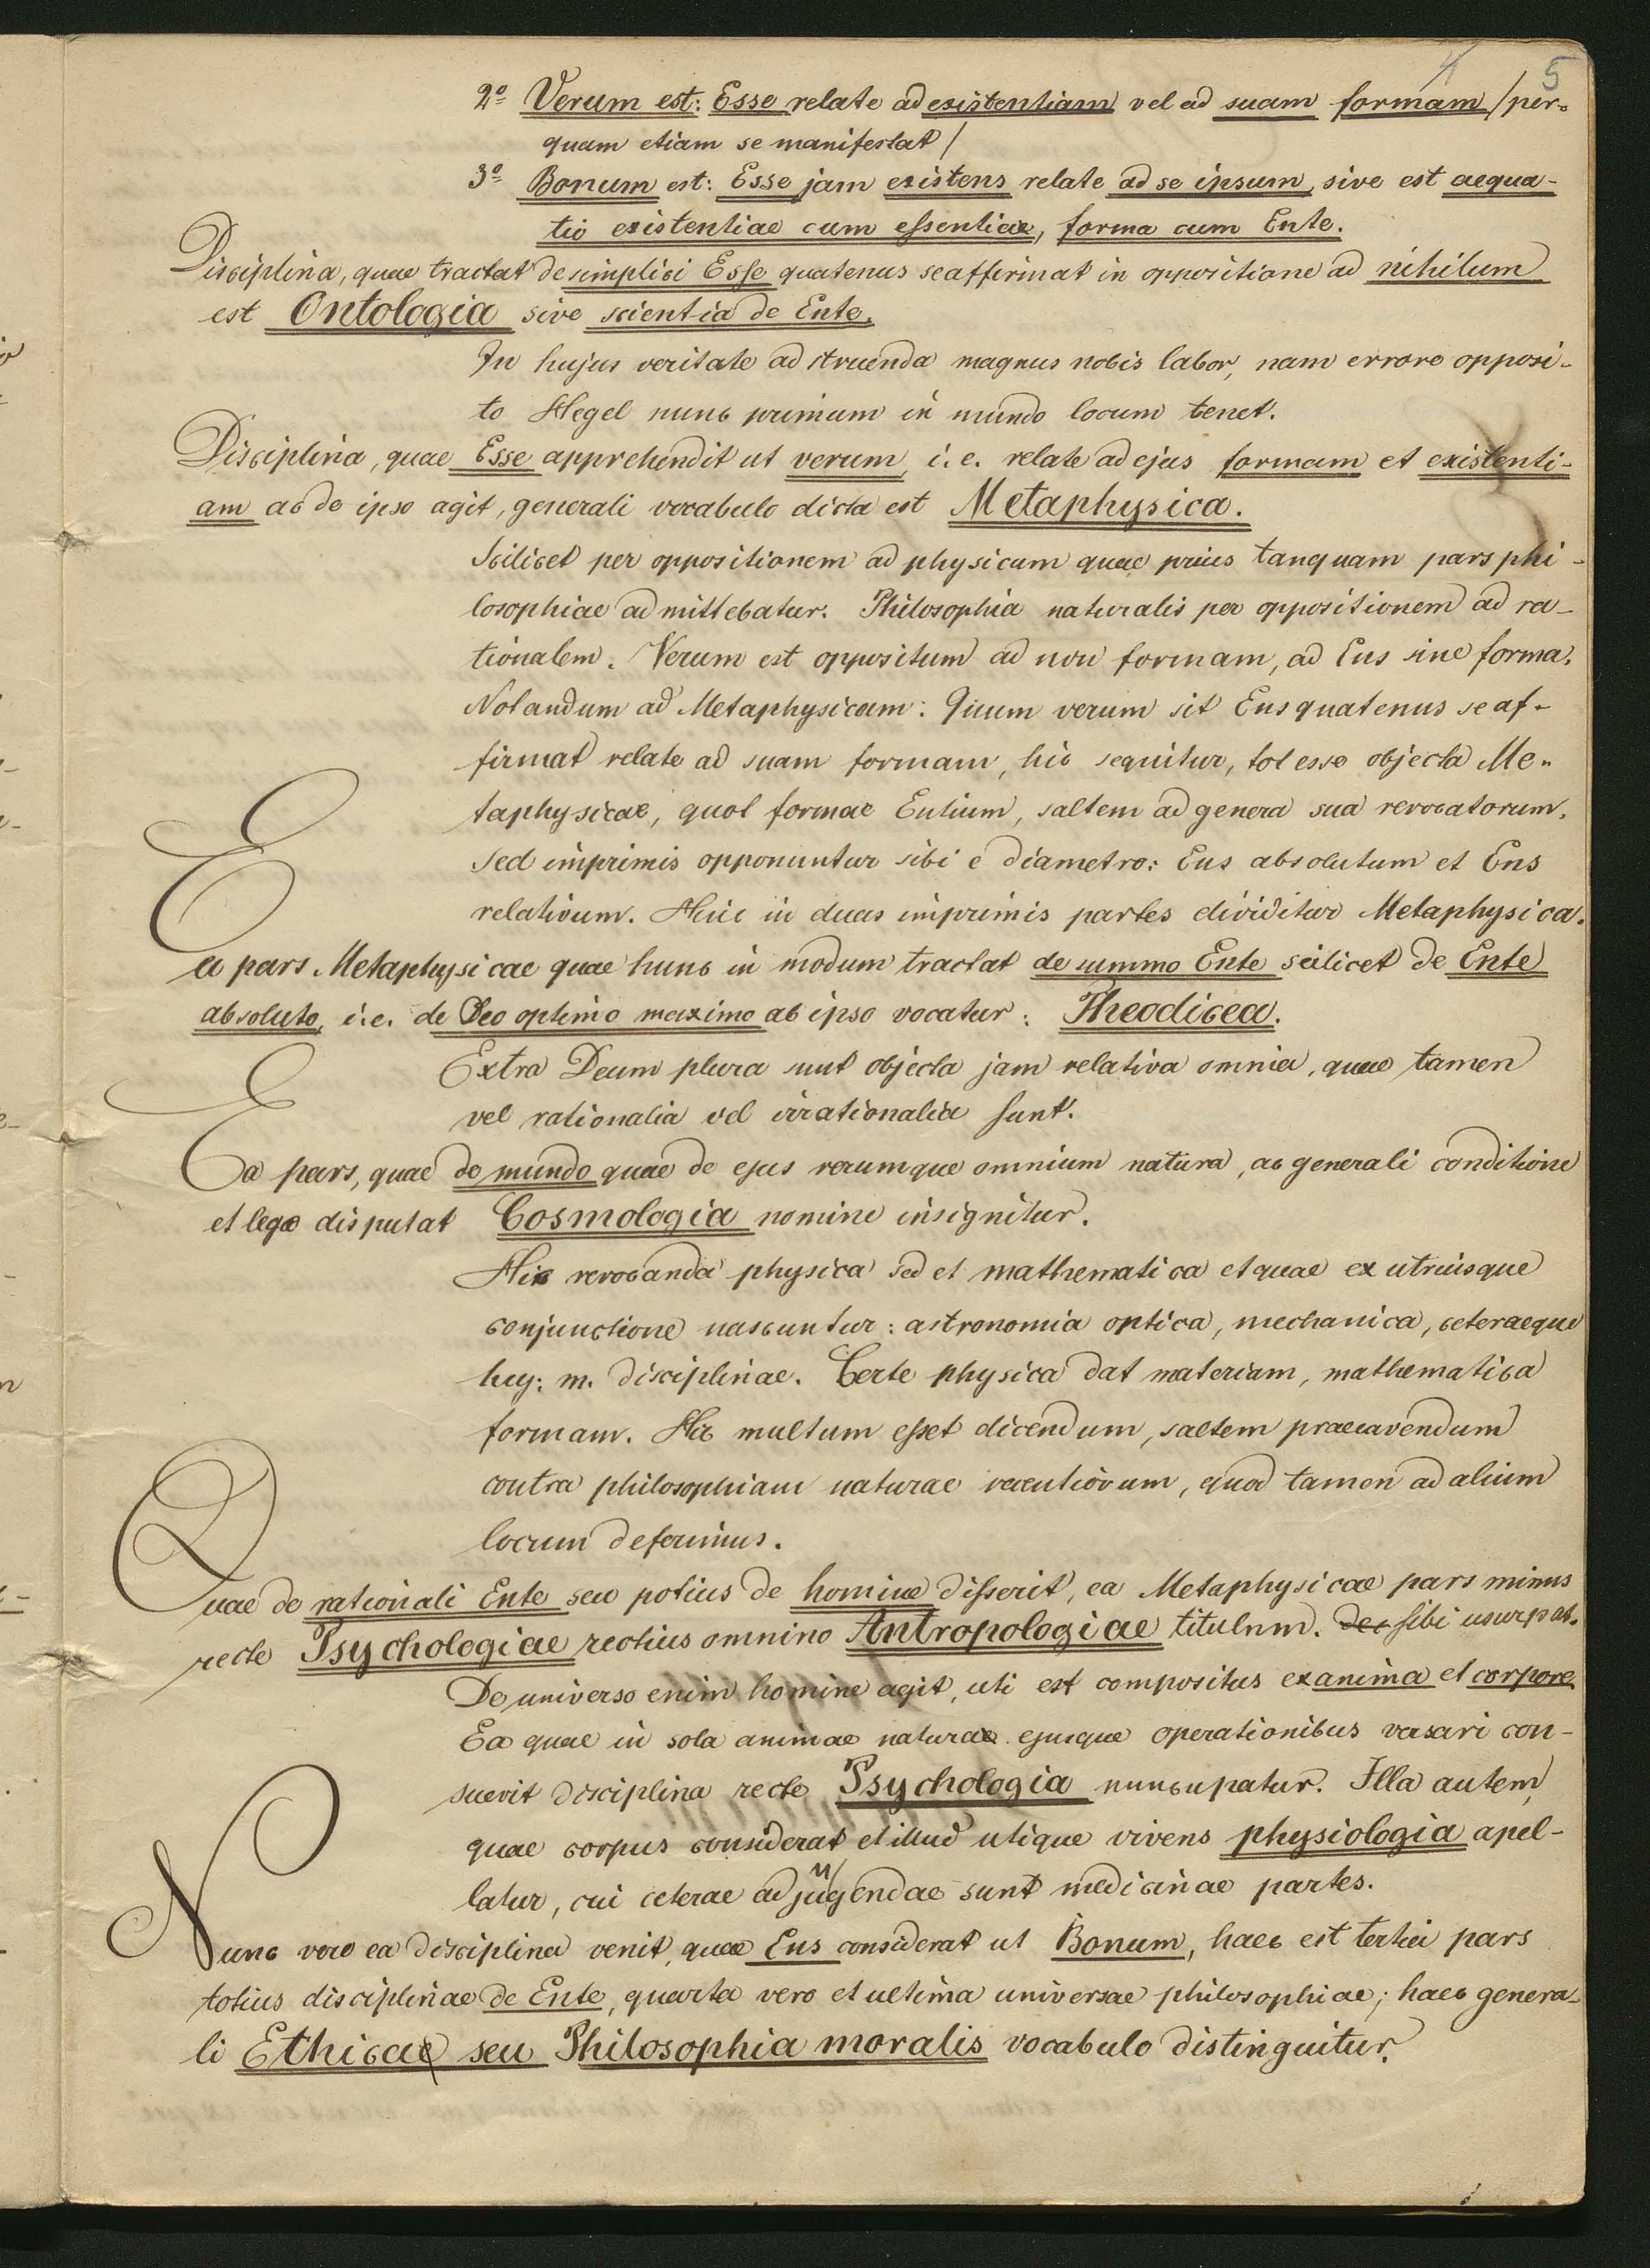 4 5
2º Verum est: Esse relate ad existentiam vel ad suam formam /per=
quam etiam se manifestat/
3º Bonum est: Esse jam existens relate ad se ipsum, sive est aequa-
tio existentiae cum essentiae, forma cum Ente.
Disciplina, quae tractat de simplici Esse quatenus se affirmat in oppositione ad nihilum
est Ontologia sive scientia de Ente.
In hujus veritate adstruenda magnus nobis labor, nam errore opposi-
to Hegel nunc primum in mundo locum tenet.
Disciplina, quae Esse apprehendit ut verum, i.e. relate ad ejus formam et existenti-
am ac de ipso agit, generali vocabulo dicta est Metaphysica.
Scilicet per oppositionem ad physicam quae prius tanquam pars phi-
losophiae admittebatur. Philosophia naturalis per oppositionem ad ra-
tionalem. Verum est oppositum ad non formam, ad Ens sine forma.
Notandum ad Metaphysicam: Quum verum sit Ens quatenus se af-
firmat relate ad suam formam, hic sequitur, tot esse objecta Me-
taphysicae, quot formae Entium, saltem ad genera sua revocatorum.
Sed imprimis opponuntur sibi e diametro: Ens absolutum et Ens
relativum. Hinc in duas imprimis partes dividitur Metaphysica.
Ea pars Metaphysicae quae hunc in modum tractat de summo Ente scilicet de Ente
absoluto, i.e. de Deo optimo maximo ab ipso vocatur: Theodicea.
Extra Deum plura sunt objecta jam relativa omnia, quae tamen
vel rationalia vel irrationalia sunt.
Ea pars, quae de mundo quae de ejus rerumque omnium natura, ac generali conditione
et lege disputat Cosmologia nomine insignitur.
Hic revocanda physica sed et mathematica et quae ex utriusque
conjunctione nascuntur: astronomia optica, mechanica, ceteraeque
huj: m. disciplinae. Certe physica dat materiam, mathematica
formam. Hic multum esset dicendum, saltem praecavendum
contra philosophiam naturae recentiorum, quod tamen ad alium
locum deferimus.
Quae de rationali Ente seu potius de homine disserit, ea Metaphysicae pars minus
recte Psychologiae rectius omnino Antropologiae titulum. sibi usurpat.
De universo enim homine agit, uti est compositus ex anima et corpore.
Ea quae in sola animae naturae ejusque operationibus versari con-
suevit disciplina recte Psychologia nuncupatur. Illa autem,
quae corpus considerat et illud utique vivens physiologia apel-
latur, cui ceterae adjungendae sunt medicinae partes.
Nunc vero ea disciplina venit, quae Ens considerat ut Bonum, haec est tertia pars
totius disciplinae de Ente, quarta vero et ultima universae philosophiae; haec genera-
li Ethicae seu Philosophia moralis vocabulo distinguitur.